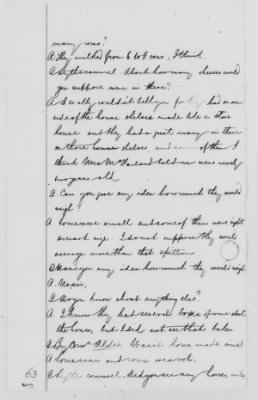 many cows?
A They milked from 6 to 8 cows, I think.
Q By the counsel. About how many cheeses would
you suppose were in there?
A I really couldn't tell you for they had on one
side of the house shelves made like a store
house and they had a great many in there
on those house shelves, and some of them I
think Mrs. McFarland told me were nearly
two years old.
Q Can you give any idea how much they would
weigh?
A Some were small and some of them were right
smart size. I do not suppose they would
average more than that
Q Have you any idea how much they would weigh
A No sir.
Q Do you know about anything else?
A I know they had several head of
the horses, but I did not see that taken
Q By Com. Aldis. Was it home made
A Some was and some was not.
Q By the counsel. Did you see any horses,
63